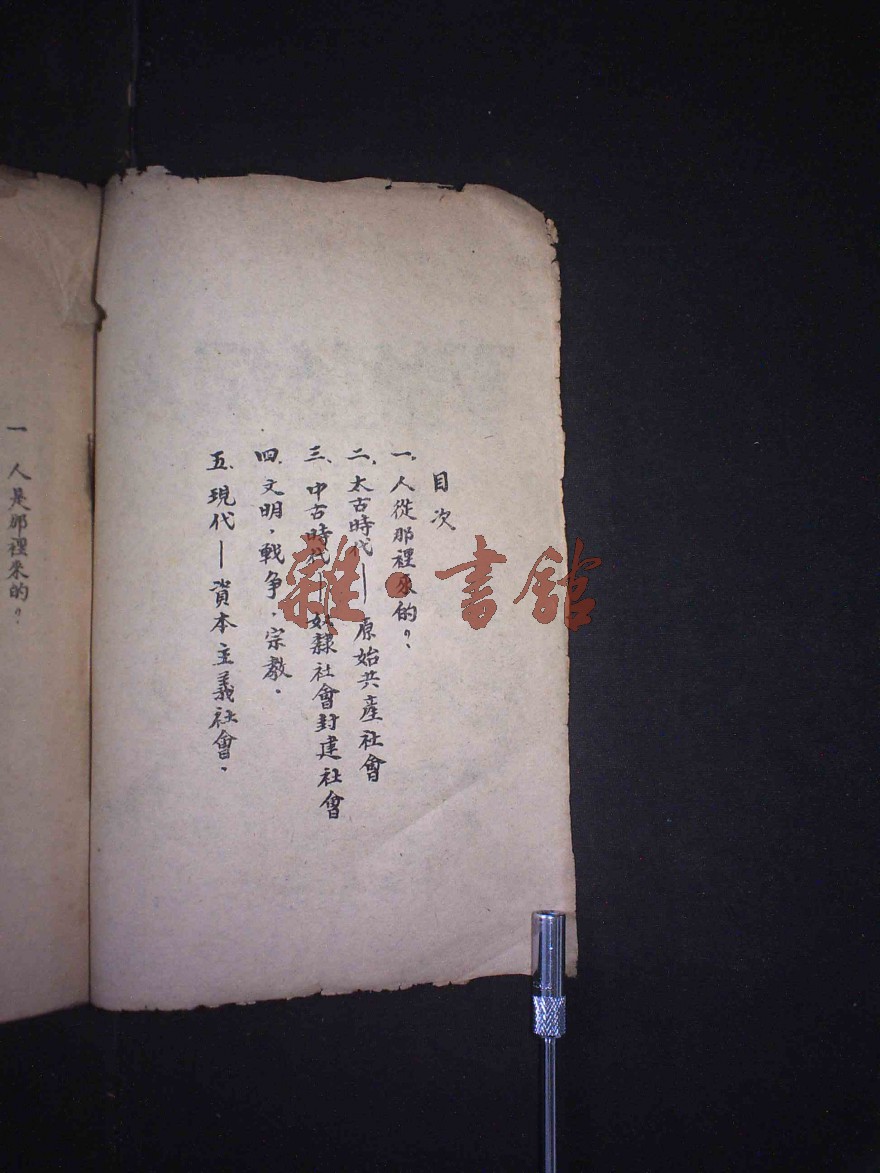 目次
一、人從那裡來的？、
二、太古時代——原始共產社會
三、中古時代——奴隸社會封建社會
四、文明，戰争，宗教。
五、現代——資本主義社會。
一 人是那裡來的？、
雜·書館